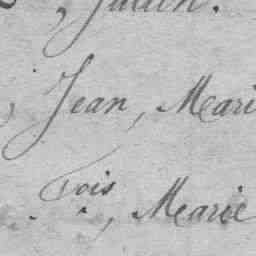 , Julien.
, Jean, Mari
Fois, Marie